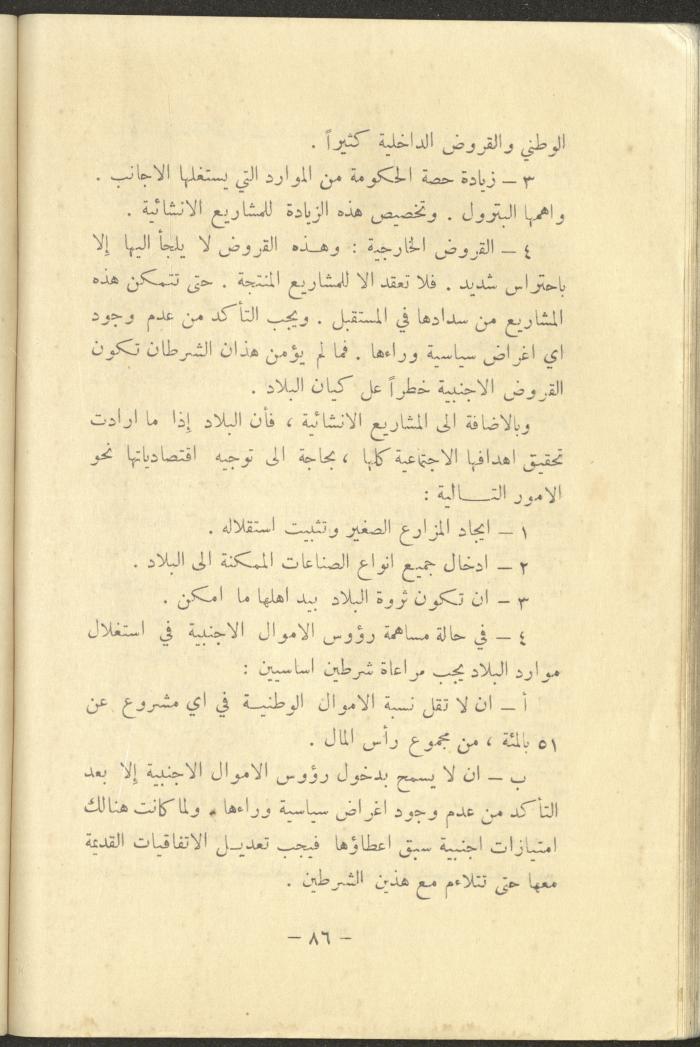 الوطني والقروض الداخلية كثيراً .
٣ – زيادة حصة الحكومة من الموارد التي يستغلها الاجانب .
واهمها البترول . وتخصيص هذه الزيادة للمشاريع الانشائية .
٤ – القروض الخارجية : وهـذه القروض لا يلجأ اليها إلا
باحتراس شديد . فلا تعقد الا للمشاريع المنتجة . حتى تتمكن هذه
المشاريع من سدادها في المستقبل . ويجب التأكد من عدم وجود
اي اغراض سياسية وراءها . فما لم يؤمن هذان الشرطان تكون
القروض الاجنبية خطراً عل كيان البلاد .
وبالاضافة الى المشاريع الانشائية ، فأن البلاد إذا ما ارادت
تحقيق اهدافها الاجتماعية كلها ، بحاجة الى توجيه اقتصادياتها نحو
الامور التـــالية :
١ – ايجاد المزارع الصغير وتثبيت استقلاله .
٢ – ادخال جميع انواع الصناعات الممكنة الى البلاد .
٣ – ان تكون ثروة البلاد بيد اهلها ما امكن .
٤ – في حالة مساهمة رؤوس الاموال الاجنبية في استغلال
موارد البلاد يجب مراعاة شرطين اساسيين :
أ – ان لا تقل نسبة الاموال الوطنيـة في اي مشروع عن
٥١ بالمئة ، من مجموع رأس المال .
ب – ان لا يسمح بدخول رؤوس الاموال الاجنبية إلا بعد
التأكد من عدم وجود اغراض سياسية وراءها . ولما كانت هنالك
امتيازات اجنبية سبق اعطاؤها فيجب تعديـل الاتفاقيات القديمة
معها حتى تتلاءم مع هذين الشرطين .
– ٨٦ –